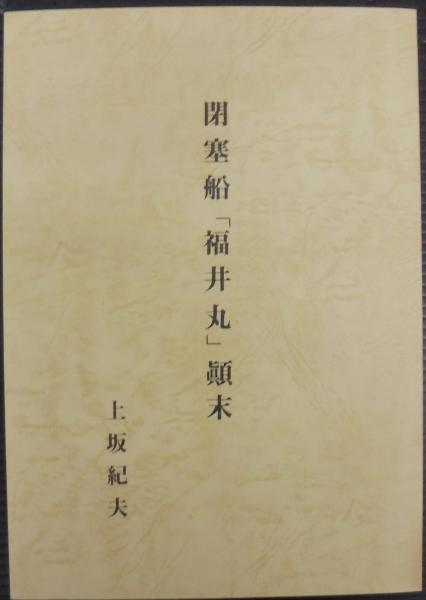 閉塞船「福井丸」顚末
上坂紀夫